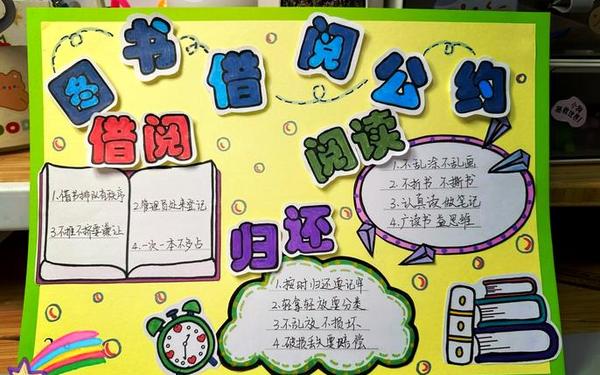 图书借阅公约
借阅
1.借书排队有秩序
2.管理员处来登记
3.不推不挤要谦让
4.一次一本不多占
阅读
1.不乱涂不乱画
2.不折书 不撕书
3.认真读 做笔记
4.广读书 益思维
归还
1.按时归还要记牢
2.轻拿轻放要分类
3.不乱放 不损坏
4.破损丢失要赔偿